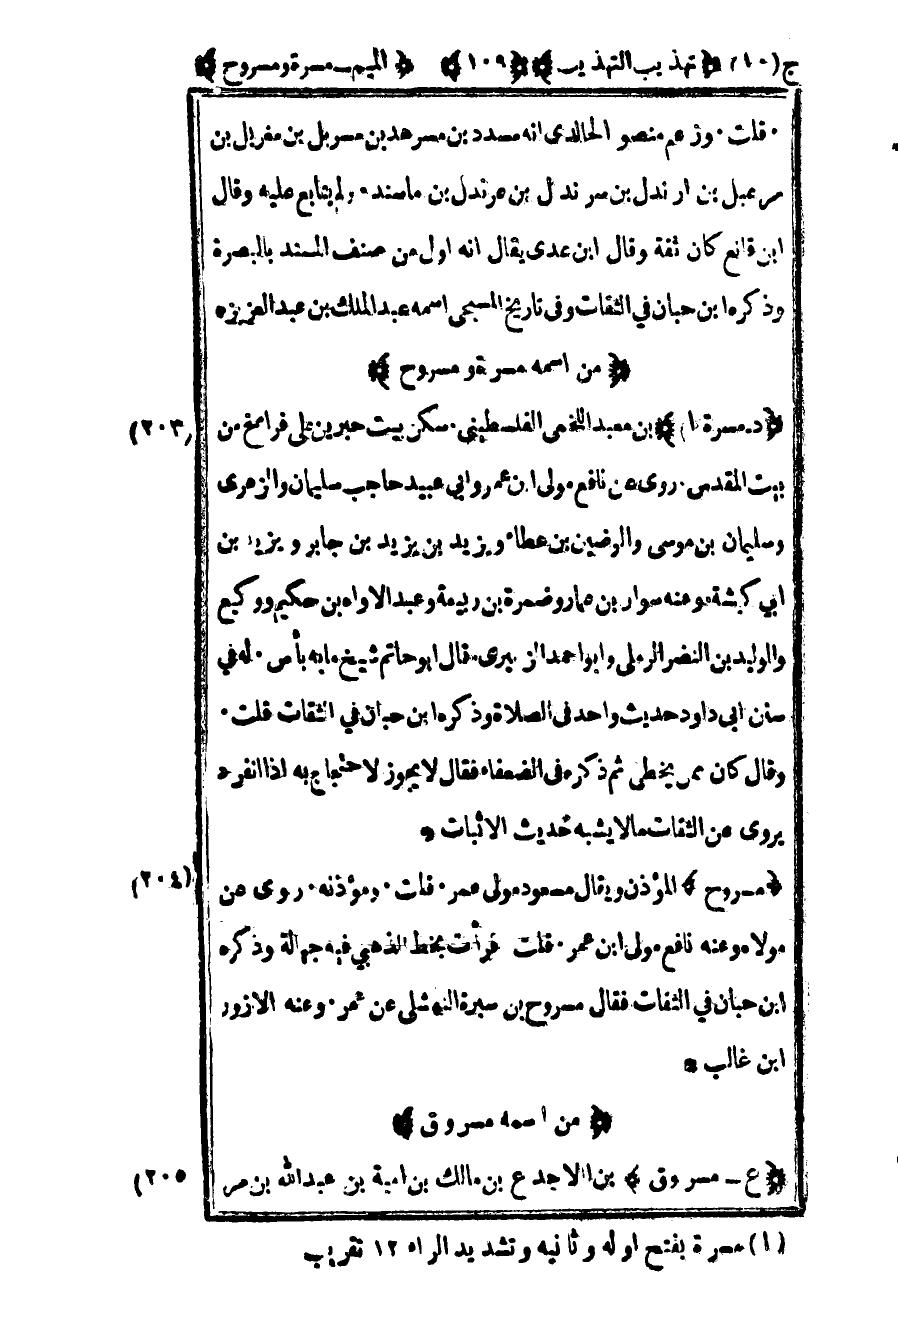 ج (١٠) ﴿ تهذيب التهذيب ﴾ ﴿ ١٠٩ ﴾ ﴿ الميم ـ مسرة ومسروح ﴾
· قلت · وزعم منصو الخالدى انه مسدد بن مسرهد بن مسربل بن مغربل بن
مرعبل بن ارندل بن سرندل بن عرندل بن ماسند · ولم يتابع عليه وقال
ابن قانع كان ثقة وقال ابن عدى يقال انه اول من صنف المسند بالبصرة
وذكره ابن حبان في الثقات وفى تاريخ المسبحى اسمه عبد الملك بن عبد العزيز ه
﴿ من اسمه مسرة و مسروح ﴾
(٢٠٣) ﴿ د ـ مسرة (١) ﴾ بن معبد اللخمى الفلسطيني · سكن بيت جبرين على فراسخ من
بيت المقدس · روى عن نافع مولى ابن عمر وابي عبيد حاجب سليمان والزهرى
وسليمان بن موسى والوضين بن عطاء ويزيد بن يزيد بن جابر ويزيد بن
ابي كبشة · وعنه سوار بن عمار وضمرة بن ربيعة وعبد الاواه بن حكيم ووكيع
والوليد بن النضر الرملى وابو احمد الزبيرى · قال ابو حاتم شيخ ما به بأس · له في
سنن ابى داود حديث واحد فى الصلاة وذكره ابن حبان في الثقات قلت ·
وقال كان ممن يخطى ثم ذكره فى الضعفاء فقال لا يجوز لاحتجاج به اذا انفرد
يروى عن الثقات مالا يشبه حديث الاثبات ه
(٢٠٤) ﴿ مسروح ﴾ المؤذن ويقال مسعود مولى عمر · قلت · ومؤذنه · روى عن
مولاه وعنه نافع مولى ابن عمر · قلت قرأت بخط الذهبي فيه جهالة وذكره
ابن حبان في الثقات فقال مسروح بن سبرة النهشلى عن عمر · وعنه الازور
ابن غالب ه
﴿ من اسمه مسروق ﴾
(٢٠٥) ﴿ ع ـ مسروق ﴾ بن الاجدع بن مالك بن امية بن عبد الله بن مر
(١) مسرة بفتح اوله وثانيه وتشديد الراء ١٢ تقريب